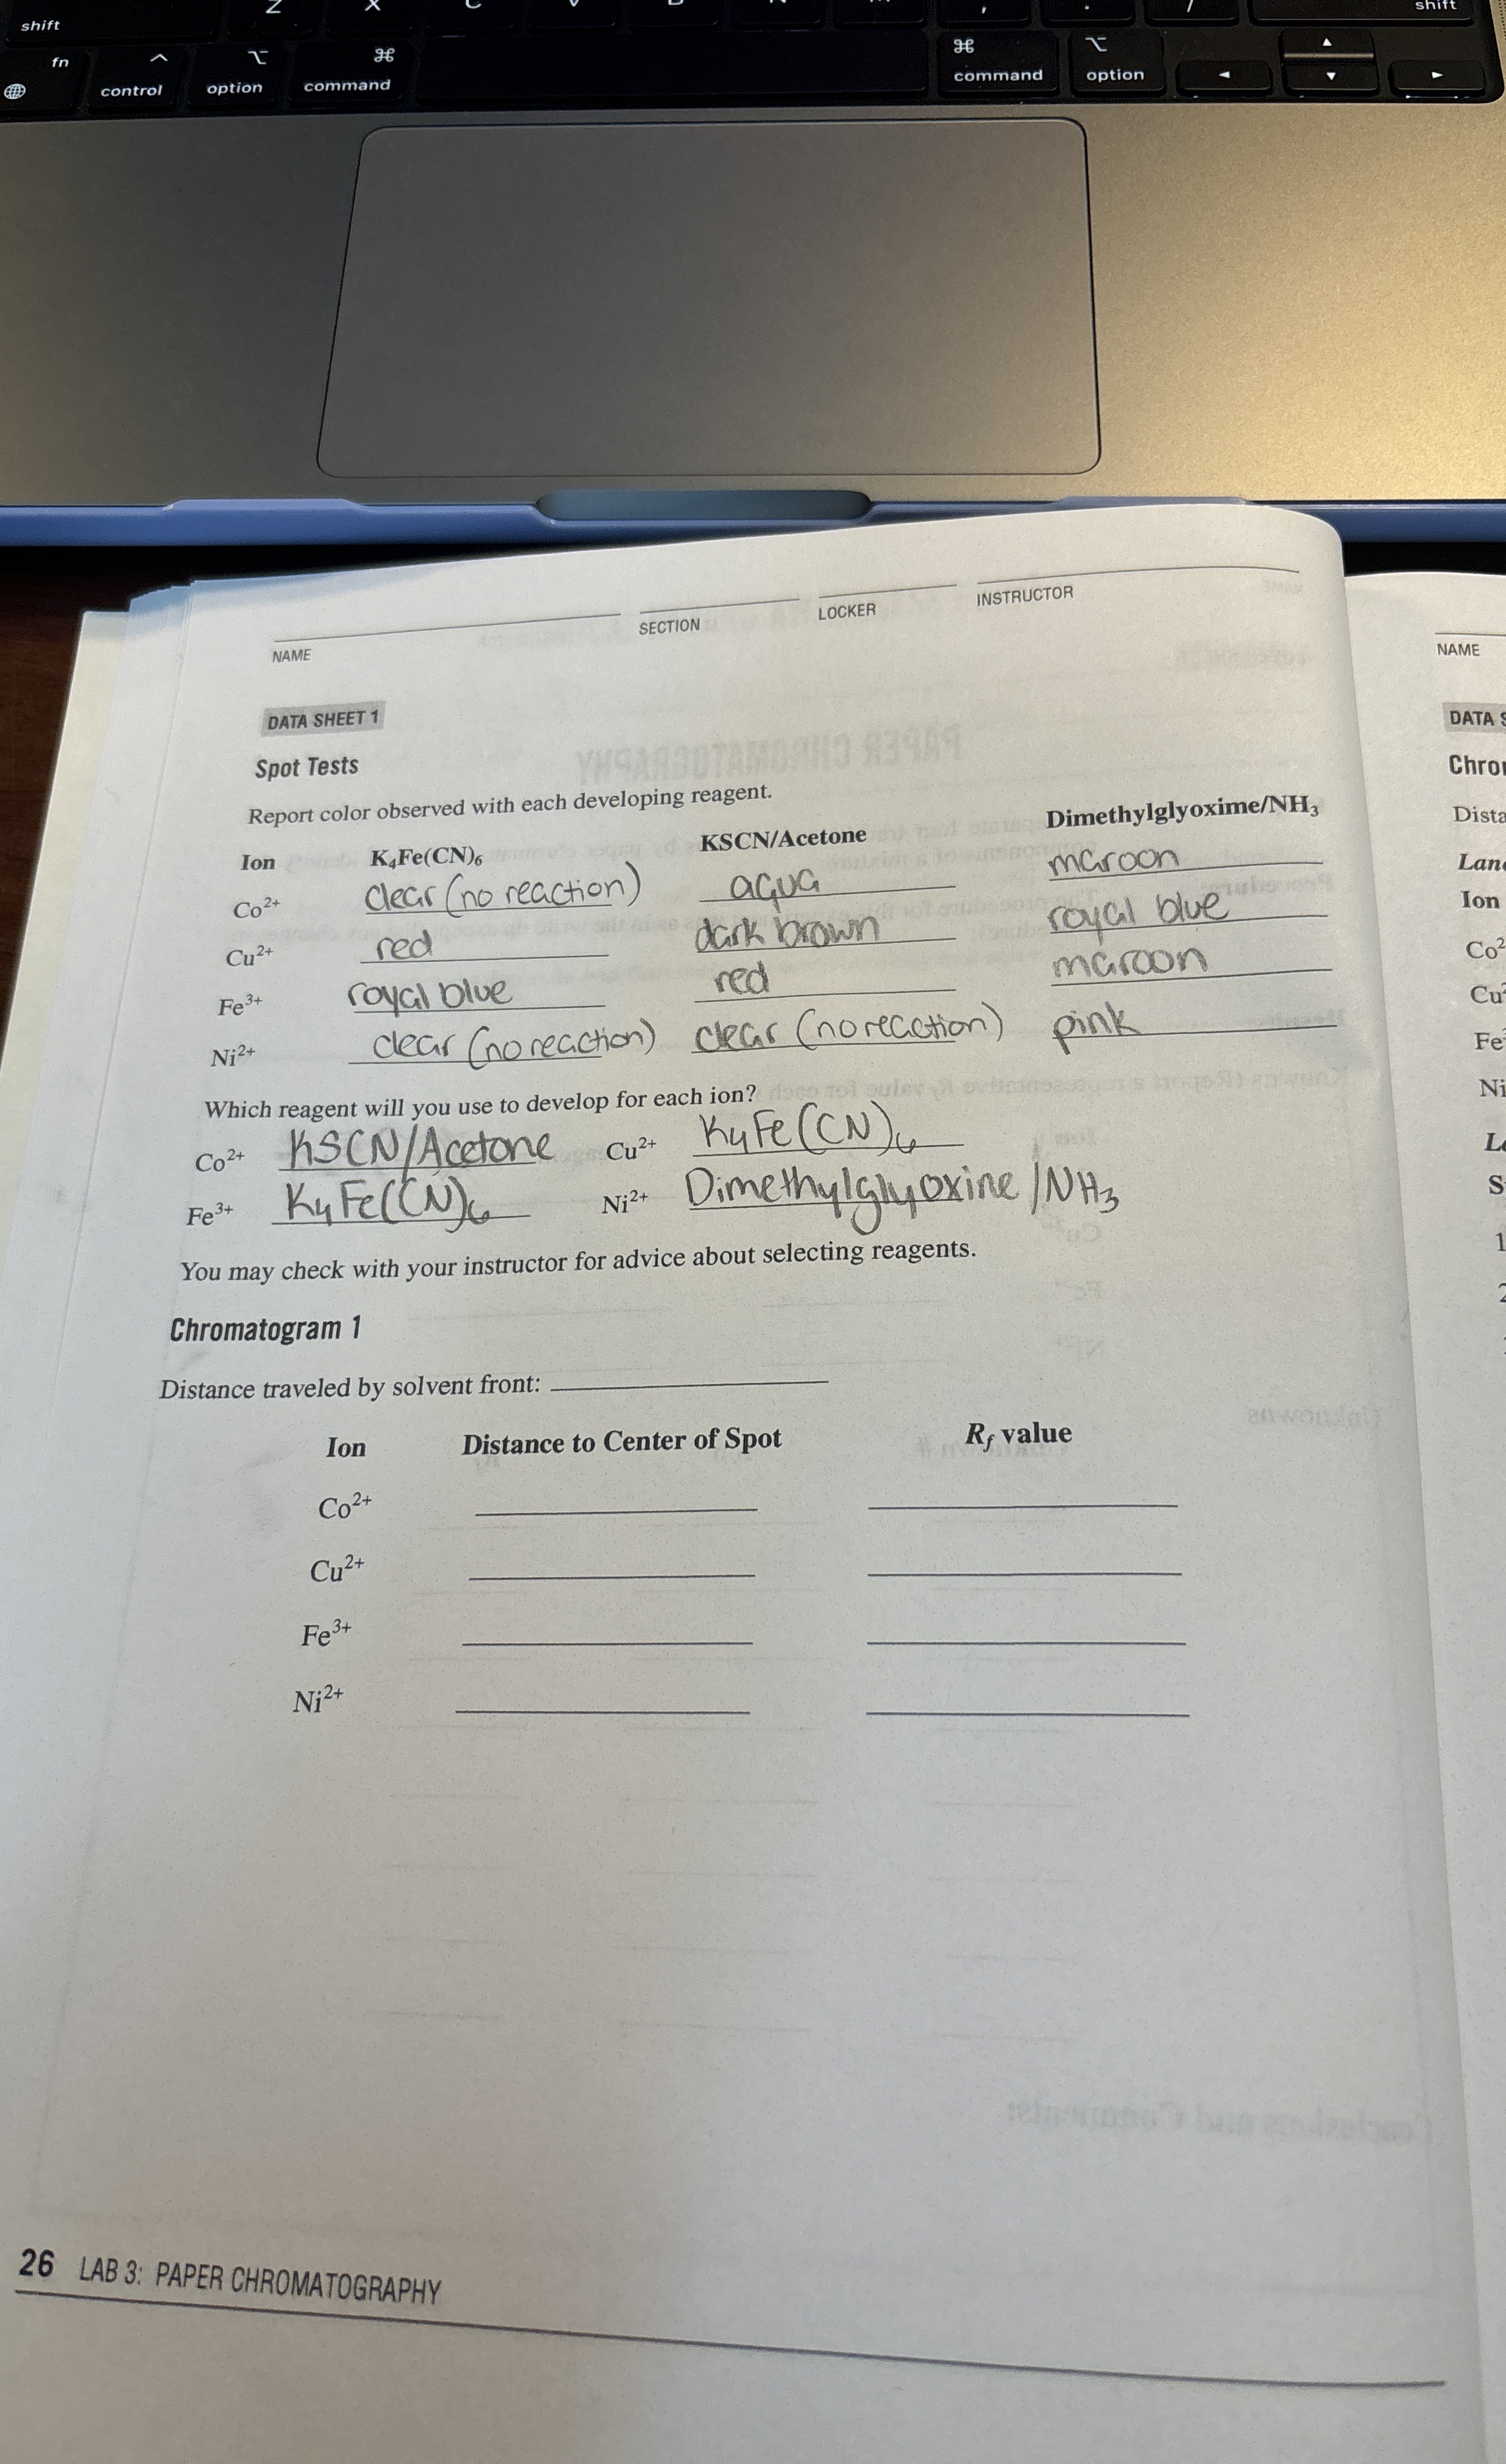 shift Z X C V B N M , . / shift
fn control option command command option
NAME SECTION LOCKER INSTRUCTOR
DATA SHEET 1
Spot Tests
Report color observed with each developing reagent.
Ion K₄Fe(CN)₆ KSCN/Acetone Dimethylglyoxime/NH₃
Co²⁺ clear (no reaction) aqua maroon
Cu²⁺ red dark brown royal blue
Fe³⁺ royal blue red maroon
Ni²⁺ clear (no reaction) clear (no reaction) pink
Which reagent will you use to develop for each ion?
Co²⁺ KSCN/Acetone Cu²⁺ K₄Fe(CN)₆
Fe³⁺ K₄Fe(CN)₆ Ni²⁺ Dimethylglyoxine/NH₃
You may check with your instructor for advice about selecting reagents.
Chromatogram 1
Distance traveled by solvent front:
Ion Distance to Center of Spot R𝑓 value
Co²⁺
Cu²⁺
Fe³⁺
Ni²⁺
26 LAB 3: PAPER CHROMATOGRAPHY
NAME
DATA
Ion